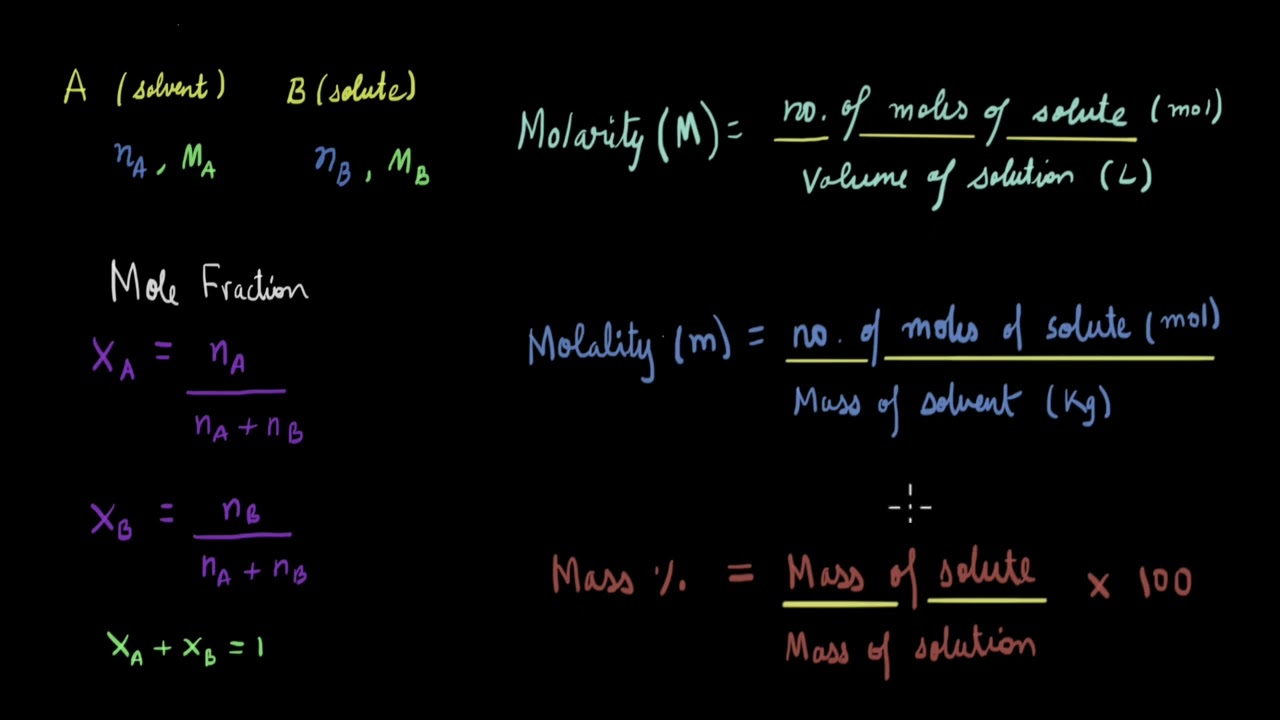 A (solvent) B (solute)
nA, MA nB, MB
Mole Fraction
XA = nA
nA + nB
XB = nB
nA + nB
XA + XB = 1
Molarity (M) = no. of moles of solute (mol)
Volume of solution (L)
Molality (m) = no. of moles of solute (mol)
Mass of solvent (Kg)
Mass % = Mass of solute × 100
Mass of solution